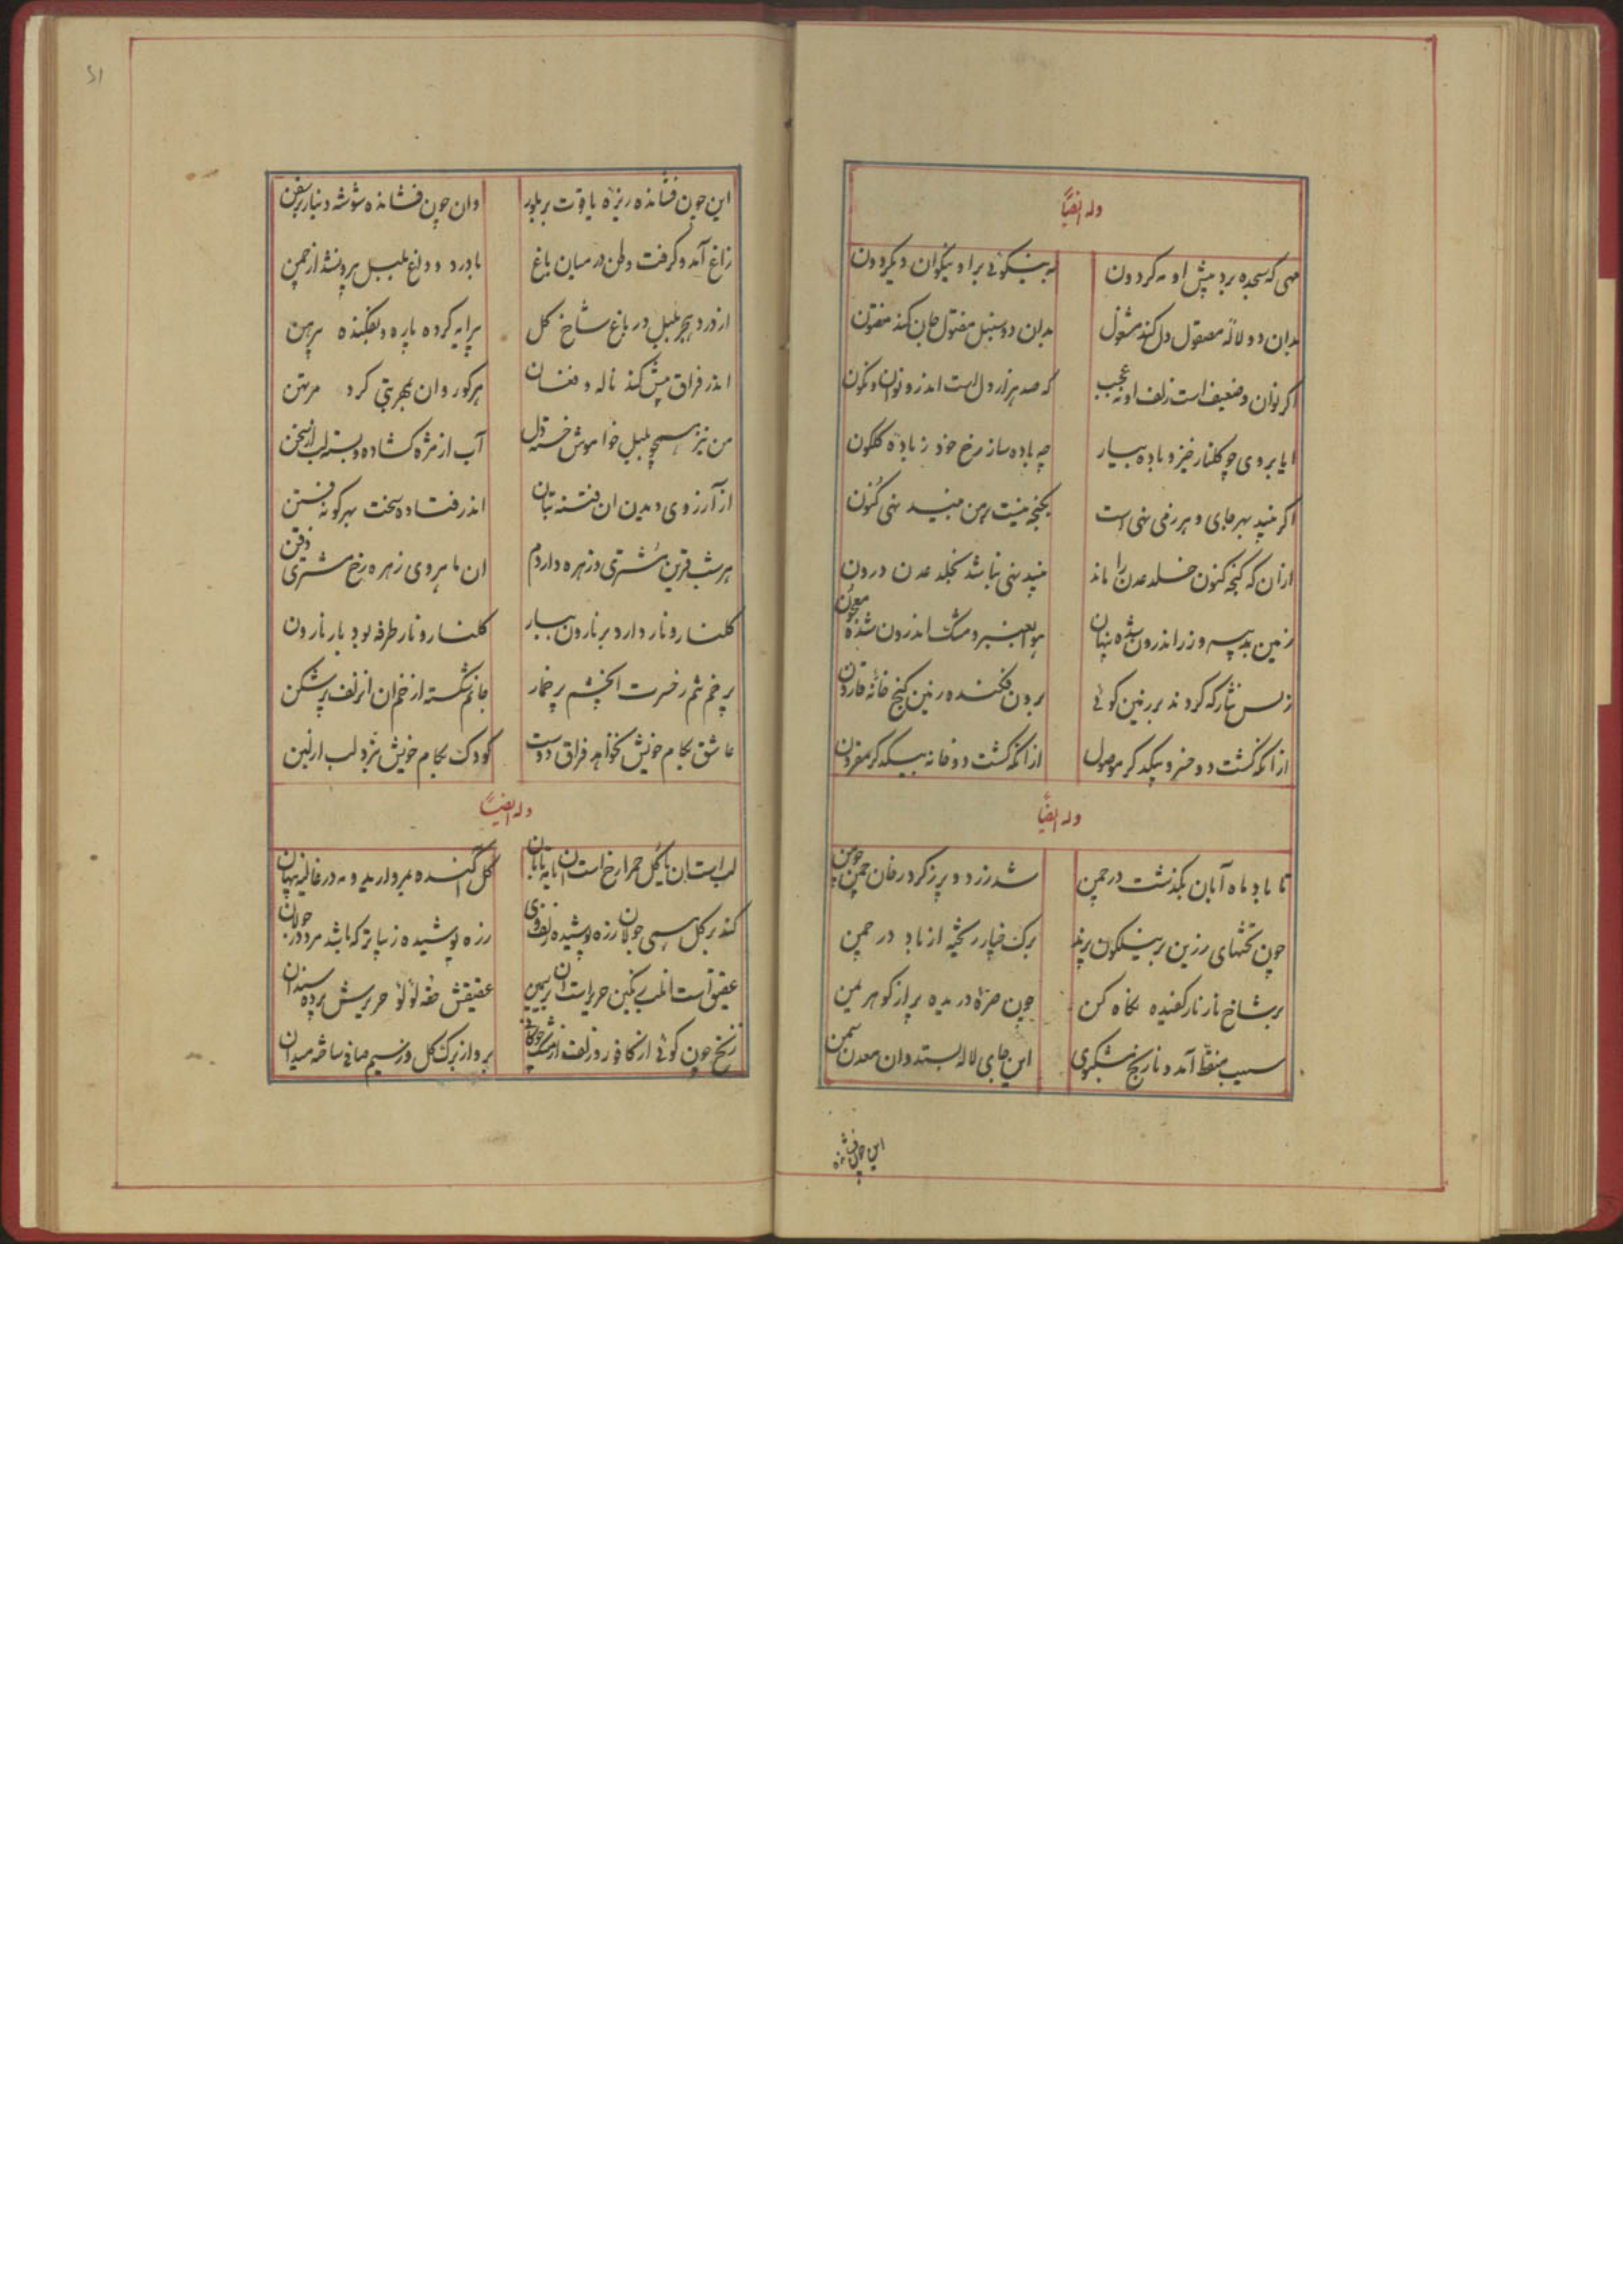 وله ایضاً
مهی که سجده برد پیش او مه کردون به نیکوئی بر او نیکوان دیکر دون
بدان دو لاله مصقول دل کند مشغول بدان دو سنبل مفتول جان کند مفتون
اکر نوان و ضعیف است زلف او نه عجب که صد هزار دل است اندر و نوان و نکون
ایا بروی چو کلنار خیز و باده بیار چه باده ساز رخ خود ز باده کلکون
اکر نبید بهر جای و هر زمی نهی است بکنجه نیست بر من نبید نهی کنون
ازان که کنجه کنون خلد عدن را ماند نبید نهی نباشد بخلد عدن درون
زمین بدیبه و زر اندرون شده پنهان هوا بعنبر و مشک اندرون شده معجون
ز بس نثار که کردند بر زمین کوئی برون فکنده زمین کنج خانه قارون
از انکه کشت دو خسرو بیکدکر موصول از انکه کشت دو خانه بیکدکر مقرون
وله ایضاً
تا باد ماه آبان بکذشت در چمن شد زرد و پر ز کرد رخان چمن چو من
چون تختهای زرین بر نیلکون پرند برک خیار ریخته از باد در چمن
بر شاخ نار نار کفیده نکاه کن چون حقه دریده پر از کوهر یمن
سیب منقط آمد و نارنج مشکبوی این جای لاله بستد و ان معدن سمن
این چون فشانده
51
این چون فشانده ریزه یاقوت بر بلور وان چون فشانده سوشه دینار بر سفن
زاغ آمد و کرفت وطن در میان باغ با درد و داغ بلبل بیرون شد از چمن
از درد هجر بلبل در باغ شاخ کل پیرایه کرده پاره و بفکنده پیرهن
اندر فراق پیش کند ناله و فغان هرکو روان بهر بتی کرد مرتهن
من نیز همچو بلبل خواموش خسته دل آب از مژه کشاده و بسته لب از سخن
از آرزوی دیدن ان فتنه بتان اندر فتاده سخت بهر کونه فتن
هر شب قرین مشتری و زهره داردم ان ماهروی زهره رخ مشتری ذقن
کلنار و نار دارد بر نارون ببار کلنار و نار طرفه بود بار نارون
پر خم شم ز فرت ان چشم پر خمار جانم شکسته از خم ان زلف پر شکن
عاشق بکام خویش نخواهد فراق دوست کودک بکام خویش نبرد لب از لبن
وله ایضاً
لب است ان یا کل حمرا رخ است ان یا مه تابان کل اکنده بمروارید و مه در غالیه پنهان
کند بر کل همی جولان زره پوشیده زلف وی زره پوشیده زیباتر که باشد مرد در جولان
عقیق است ان لب رنکین حریر است ان بر سیمین عقیقش حقه لؤلؤ حریرش پرده سندان
زنخ چون کوئی از کافور و زلف از مشک چوکانی بر و از برک کل وز سیم صافی ساخته میدان